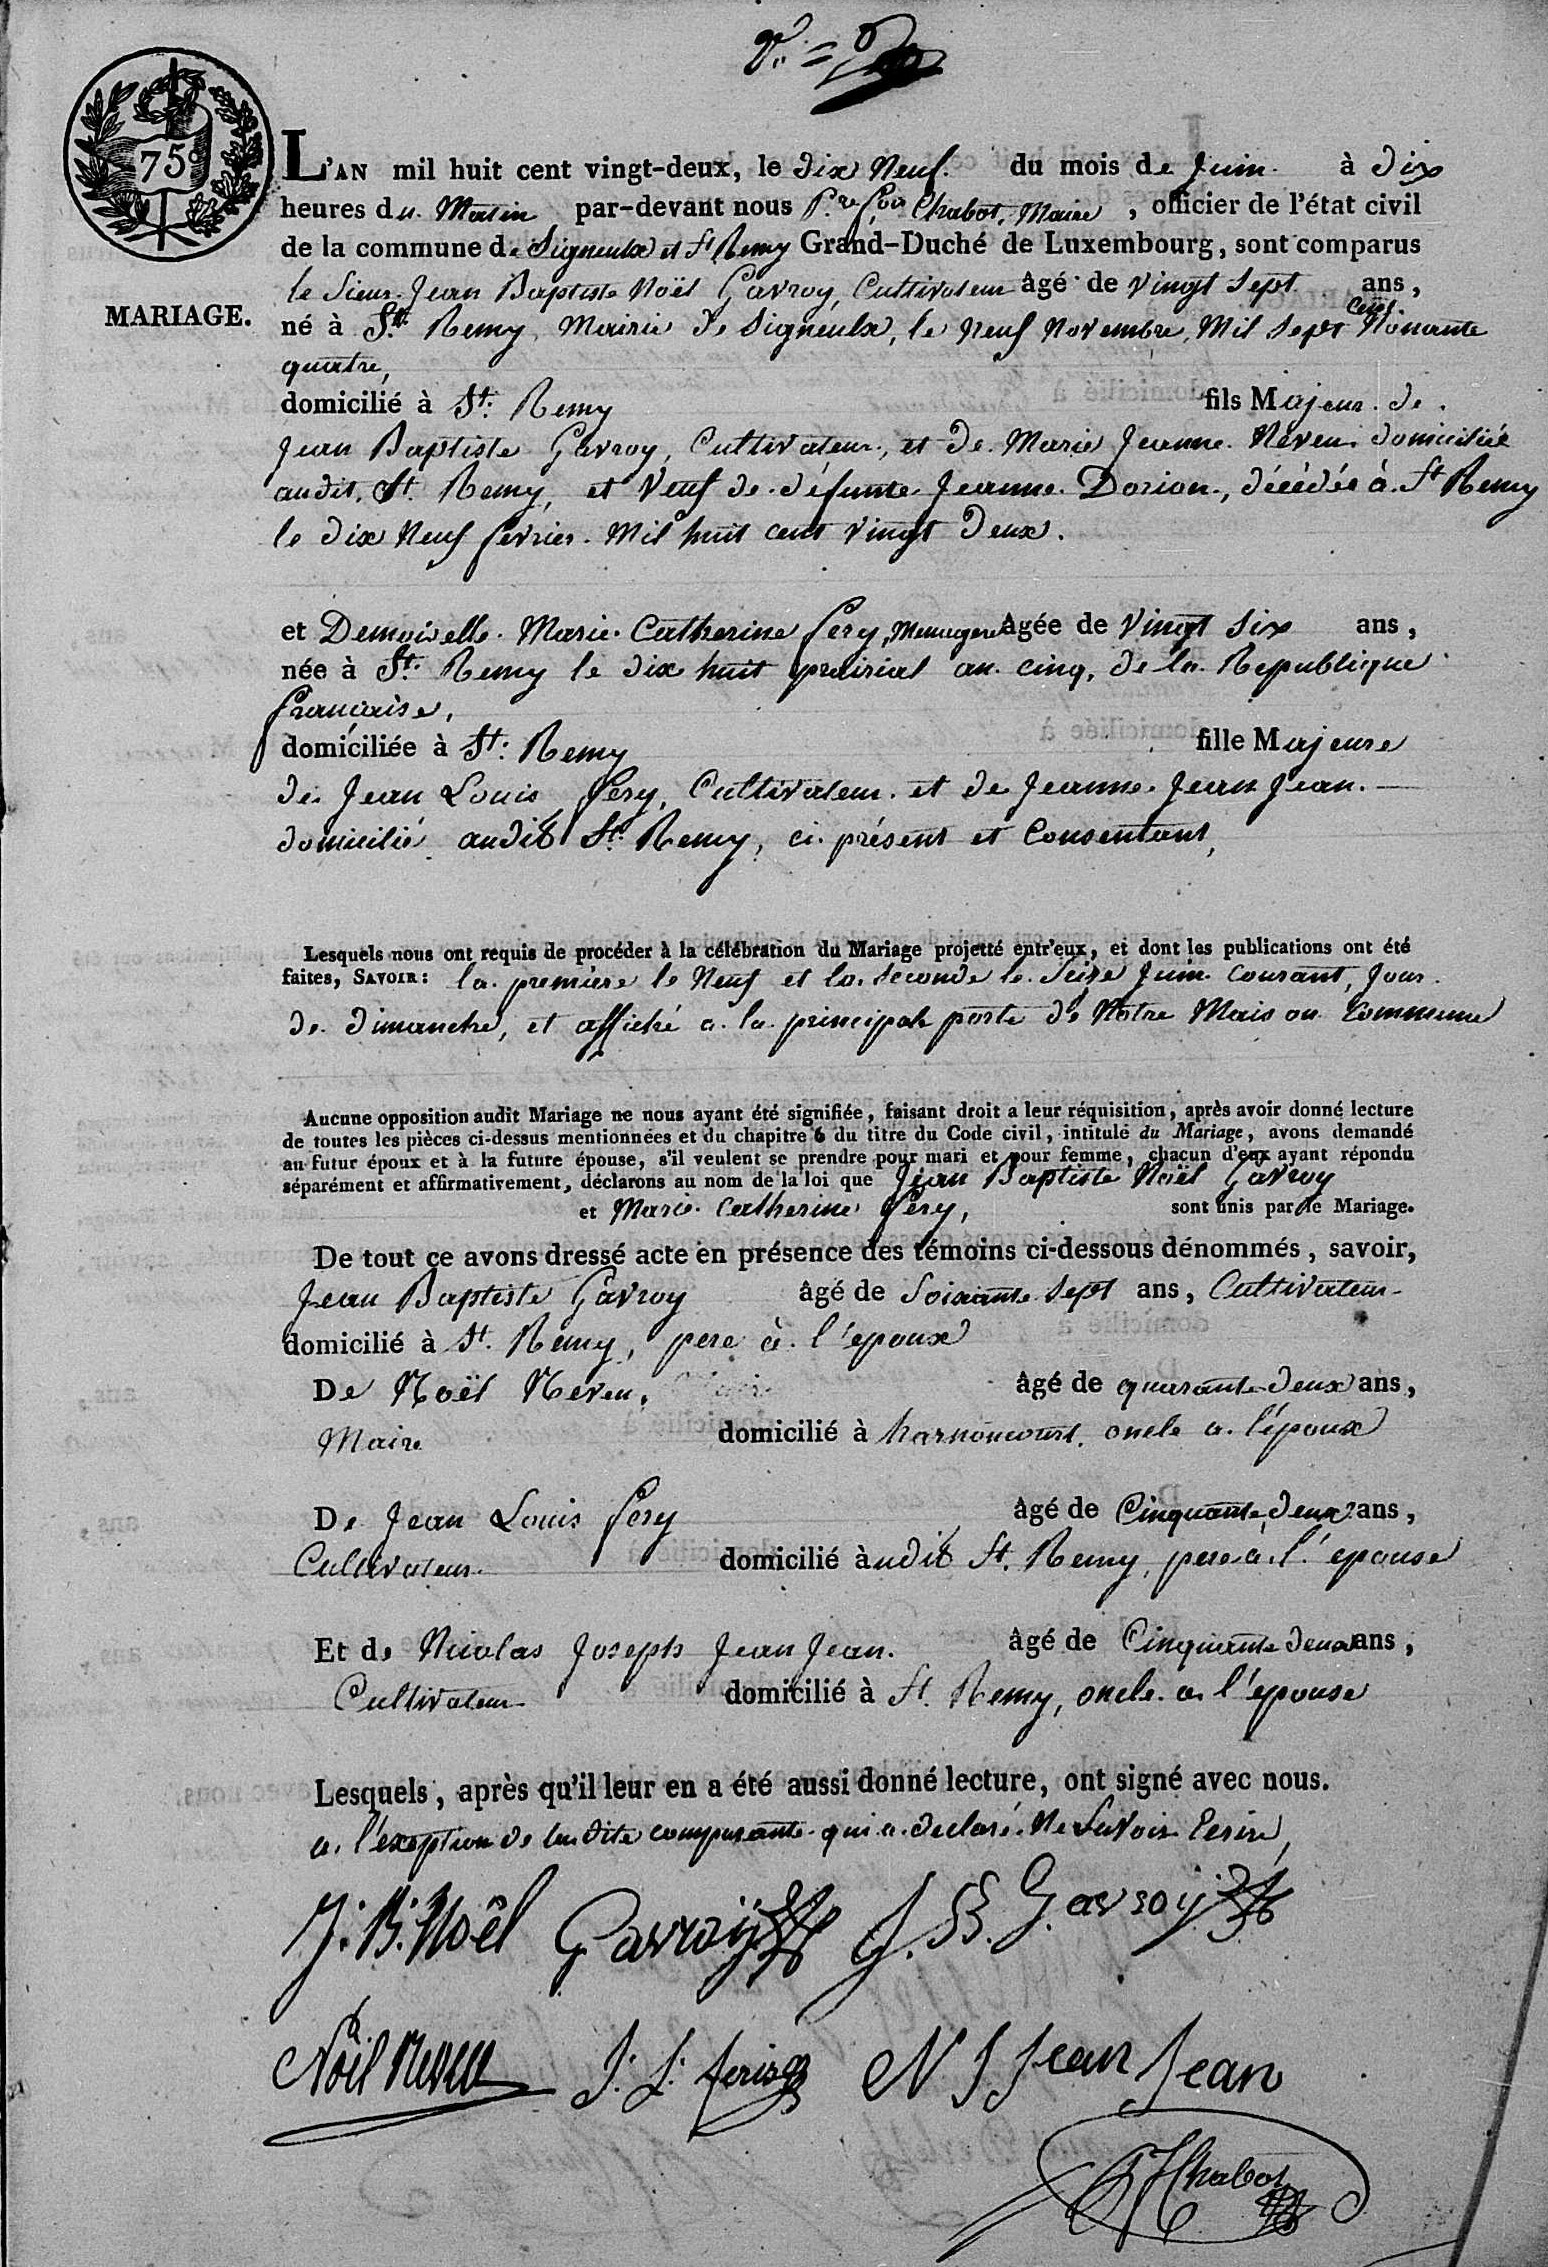 75c
MARIAGE.
L'AN mil huit cent vingt-deux, le dix Neuf. du mois de Juin. à dix
heures du Matin par-devant nous P.re f.ois Chabot, Maire, officier de l'état civil
de la commune de Signeulx et St Remy Grand-Duché de Luxembourg, sont comparus
le Sieur Jean Baptiste Noël Gavroy, Cultivateur âgé de vingt sept ans,
né à St. Remy, Mairie de Signeulx, le Neuf Novembre, Mil sept cent Nonante
quatre,
domicilié à St. Remy fils Majeur de
Jean Baptiste Gavroy, Cultivateur, et de Marie Jeanne Neven domiciliée
audit St. Remy, et Veuf de défunte Jeanne Dorion, décédée à St Remy
le dix Neuf fevrier Mil huit cent vingt Deux.
et Demoiselle Marie Catherine fery, Menagere âgée de Vingt Six ans,
née à St. Remy le dix huit prairial an cinq, de la Republique
française,
domiciliée à St. Remy fille Majeure
de Jean Louis fery, Cultivateur et de Jeanne Jean Jean.
domicilié audit St. Remy, ci présent et Consentant,
Lesquels nous ont requis de procéder à la célébration du Mariage projetté entr'eux, et dont les publications ont été
faites, SAVOIR: la première le Neuf et la Seconde le Seize Juin courant, Jour
de dimanche, et affiché a la principale porte de Notre Maison Commune
Aucune opposition audit Mariage ne nous ayant été signifiée, faisant droit a leur réquisition, après avoir donné lecture
de toutes les pièces ci-dessus mentionnées et du chapitre 6 du titre du Code civil, intitulé du Mariage, avons demandé
au futur époux et à la future épouse, s'il veulent se prendre pour mari et pour femme, chacun d'eux ayant répondu
séparément et affirmativement, déclarons au nom de la loi que Jean Baptiste Noël Gavroy
et Marie Catherine fery, sont unis par le Mariage.
De tout ce avons dressé acte en présence des témoins ci-dessous dénommés, savoir,
Jean Baptiste Gavroy âgé de Soixante Sept ans, Cultivateur
domicilié à St. Remy, pere à l'epoux
De Noël Neven, âgé de quarante-deux ans,
Maire domicilié à harnoncourt. oncle a l'époux
De Jean Louis fery âgé de Cinquante deux ans,
Cultivateur domicilié audit St. Remy, pere a l'epouse
Et de Nicolas Joseph Jean Jean. âgé de Cinquante deux ans,
Cultivateur domicilié à St. Remy, oncle a l'epouse
Lesquels, après qu'il leur en a été aussi donné lecture, ont signé avec nous.
a l'exeption de laditte comparante qui a declaré Ne Savoir Ecrire,
J: B: Noêl Gavroij J. B. Gavroij
Nöel Neven J: L: feri N J Jean Jean
Chabot